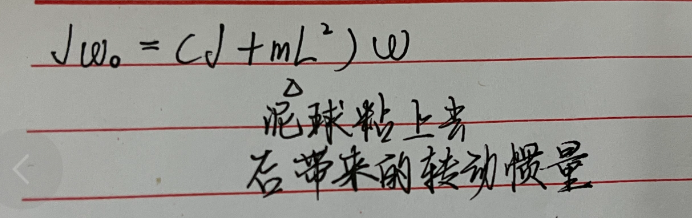 Jω₀ = (J + mL²) ω
△
泥球粘上去
后带来的转动惯量